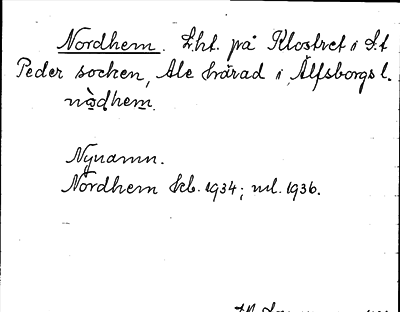 Nordhem. Lht. på Klostret i S:t
Peder socken, Ale härad i Älfsborgs l.
nòḍhem.
Nynamn.
Nordhem kb. 1934; ml. 1936.